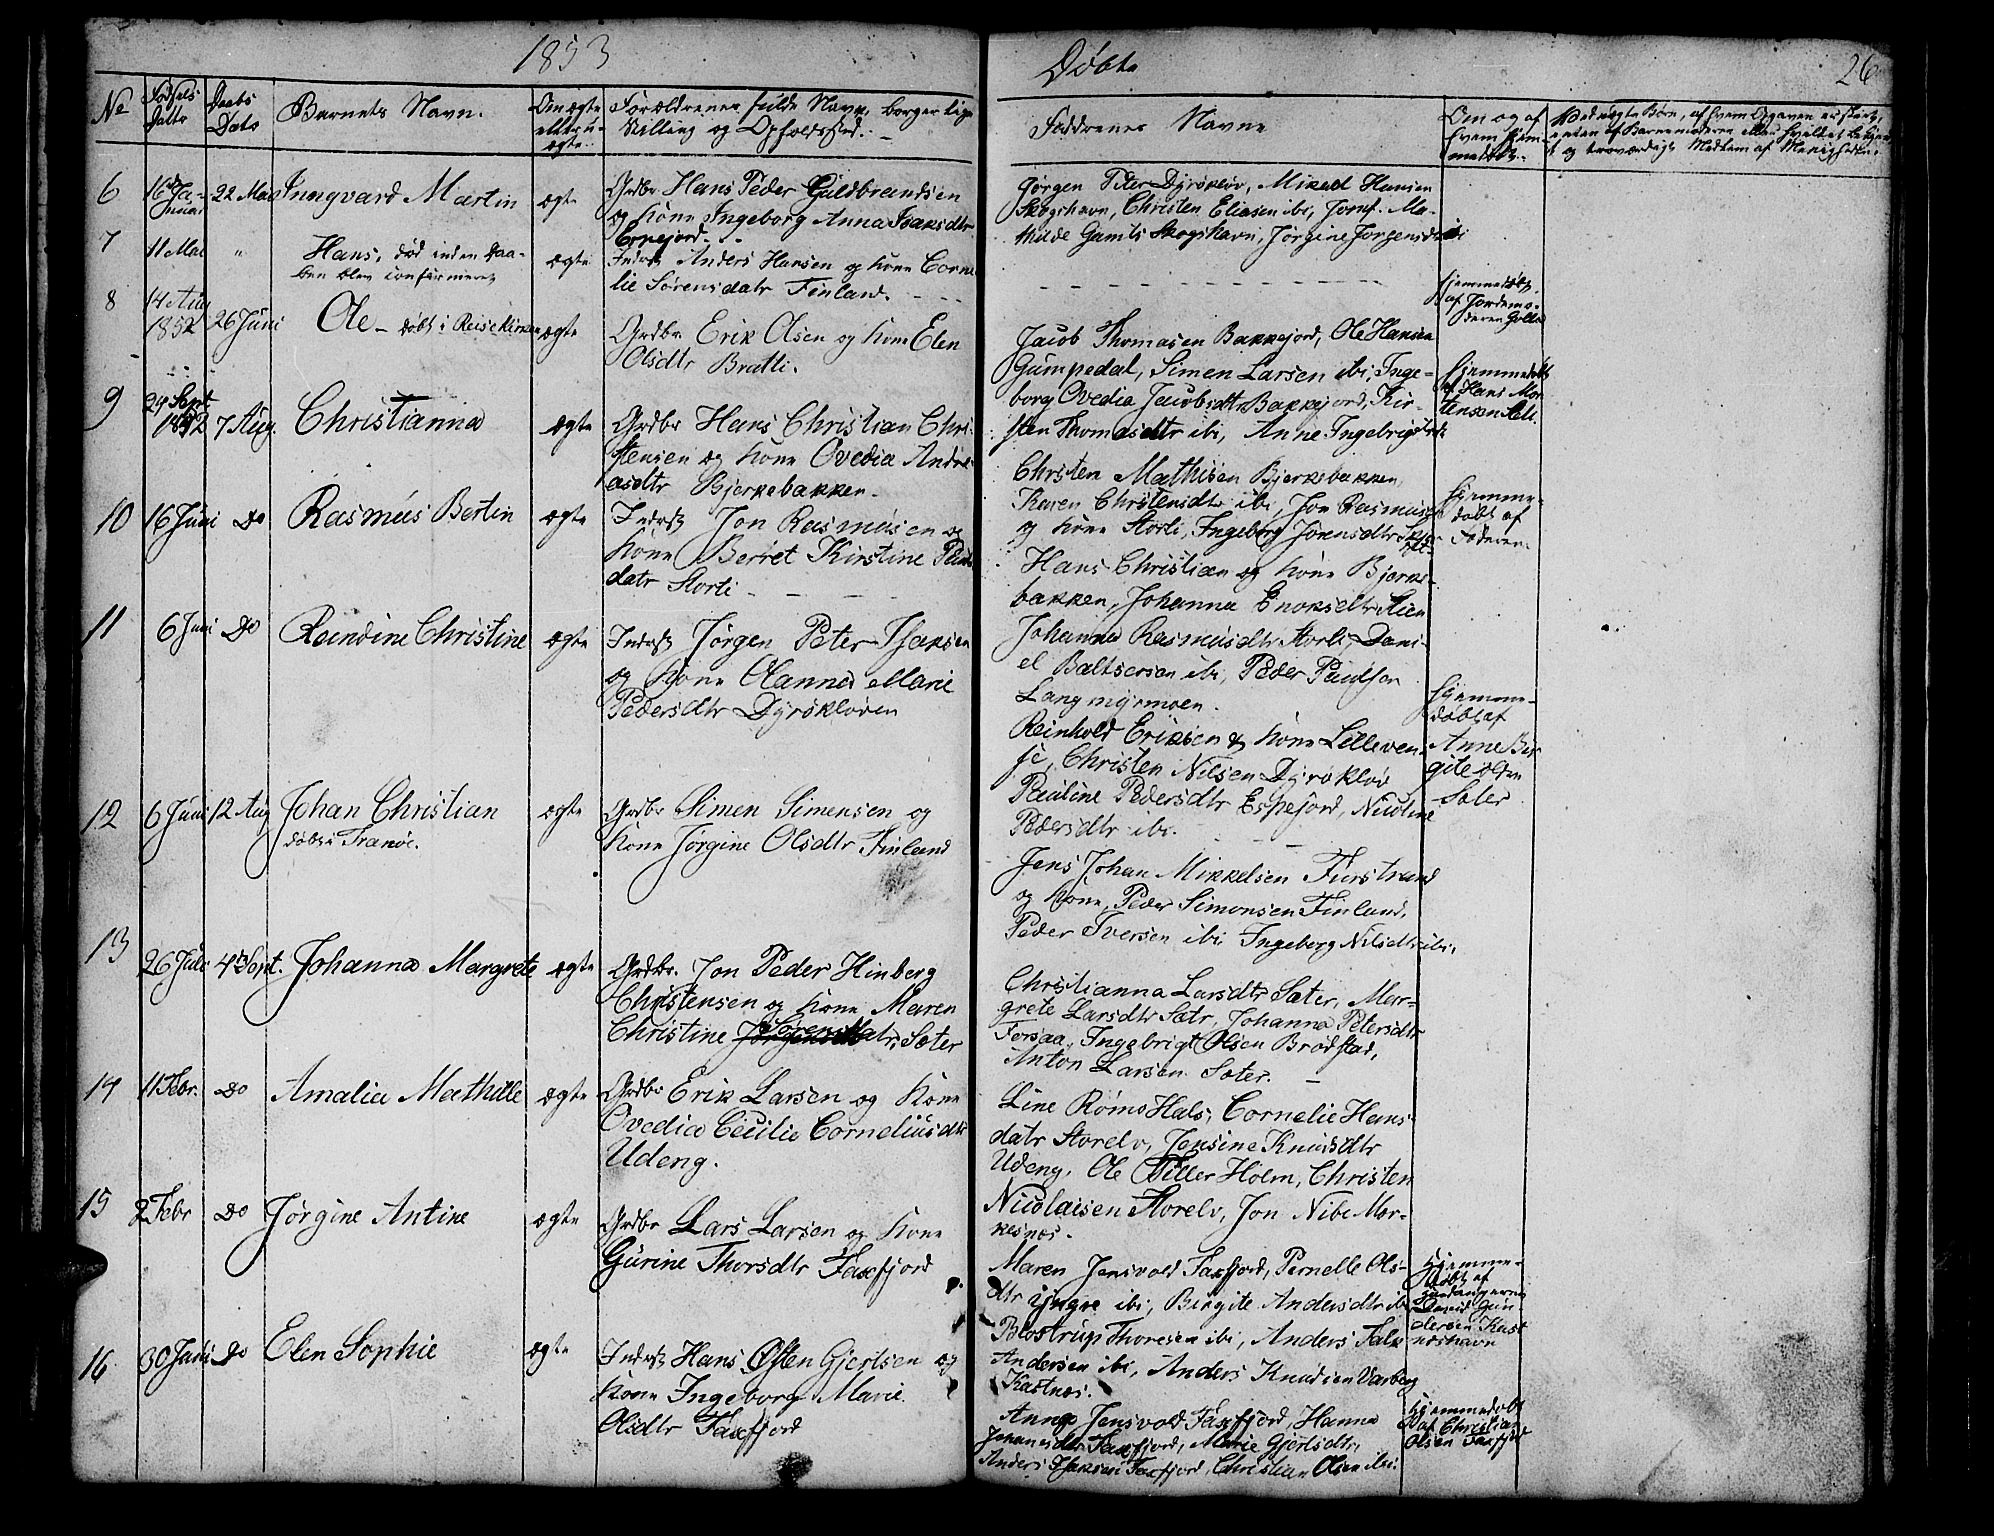 1853
Døbte
26
No
Fødsels Datte
Daabs Dato
Barnets Navn.
Om ægte eller uægte.
Forældrenes fulde Navn, borgerlige
Stilling og Opholdsted.
Faddrenes Navne
Om og af hvem hjemmedøbt.
Ved uægte Børn, af hvem Opgaven er skeet,
enten af Barnemoderen eller hvilket beken
t og troværdigt Medlem af Menigheden.
6
16de Januar
22 Mai
Inngvard Martin
ægte
Grdbr Hans Peder Guldbrandsen
og kone Ingeborg Anna Isaksdtr
Espejord.
Jørgen Peter Dyrøkløv, Mikael Hansen
Skogshavn, Christen Eliasen ibi, Jomf. Ma-
thilde Gamts Skogshavn, Jørgine Jørgensdtr ibi
7
11 Mai
"
Hans, død inden Daa-
ben blev confirmeret
ægte
Inderst Anders Hansen og kone Corne
lie Sørensdatr Finland.
hjemmedøbt
af Jordemo-
deren
8
14 Aug
1852
26 Juni
Ole - døbt i Reisekirken
ægte
Grdbr Erik Olsen og kone Elen
Olsdtr Bratli.
Jacob Thomasen Bakkejord, Ole Hansen
Gumpedal, Simen Larsen ibi, Inge-
borg Ovedia Jacobsdtr Bakkejord, Kir-
sten Thomasdtr ibi, Anne Ingebrigtsdtr
hjemmedøbt
af Hans Mor
tensen
9
24 Sept
1852
7 Aug.
Christianna
ægte
Grdbr Hans Christian Chri-
stensen og kone Ovedia Andre-
asdtr Bjerkebakken.
Christen Mathisen Bjerkebakken,
Karen Christensdtr ibi, Jon Rasmusen
og kone Storli, Ingeborg Jørensdtr
hjemme-
døbt af
Faderen.
10
16 Juni
Do
Rasmus Bertin
ægte
Inderst Jon Rasmusen og
kone Berret Kirstine Pauls
datr Storli
Hans Christian og kone Bjerke-
bakken, Johanna Enoksdtr
Johanna Rasmusdtr Storli, Dani-
el Baltsersen ibi, Peder Paulsen
Langmyrmoen.
11
6 Juni
Do
Randine Christine
ægte
Inderst Jørgen Peter Isaksen
og kone Olanna Marie
Pedersdtr Dyrøkløven
Reinhold Eriksen & kone Lilleven-
je, Christen Nilsen Dyrøkløv
Pauline Pedersdtr Espejord, Nicoline
Pedersdtr ibi.
hjemme-
døbt af
Anne Bir
gite
Sæter
12
6 Juni
12 Aug
Johan Christian
døbt i Tranøe.
ægte
Grdbr Simen Simensen og
kone Jørgine Olsdtr Finland
Jens Johan Mikkelsen Furstrand
og kone, Peder Simonsen Finland,
Peder Iversen ibi Ingeborg Nilsdtr ibi.
13
26 Juli
4de Sept.
Johanna Margrete
ægte
Grdbr. Jon Peder Hinberg
Christensen og kone Maren
Christine Sørensdatr, Sæter
Christianna Larsdtr Sæter, Mar-
grete Larsdtr Sætr, Johanna Petersdtr
Forsaa, Ingebrigt Olsen Brødstad,
Anton Larsen Sæter.
14
11 Febr.
Do
Amalia Mathilde
ægte
Grdbr Erik Larsen og kone
Ovedia Cecilie Corneliusdtr
Udeng.
Line Røms Hals, Cornelie Hans-
datr Storelv, Jensine Knudsdtr
Udeng, Ole Tiller Holm, Christen
Nicolaisen Storelv, Jon Nibe Mor-
kesnæs.
15
2 Febr
Do
Jørgine Antine
ægte
Grdbr Lars Larsen og kone
Gurine Thorsdtr Faxfjord
Maren Jensvold Faxfjord, Pernelle Ols-
dtr yngre ibi, Birgite Andersdtr ibi
Blostrup Thoresen ibi, Anders Falk
Andersen ibi, Anders Knudsen Varberg
Kastnæs.
hjemme-
døbt af
David Gun-
dersen Kast
næshavn
16
30 Juni
Do
Elen Sophie
ægte
Inderst Hans Østen Gjertsen og
kone Ingeborg Marie
Olsdtr Faxfjord
Anne Jensvold Faxfjord, Hanna
Johansdtr Faxfjord, Marie Gjertsdtr,
Anders Isaksen Faxfjord, Christian Olsen ibi.
hjemmedøbt
af Christian
Olsen Faxfjord